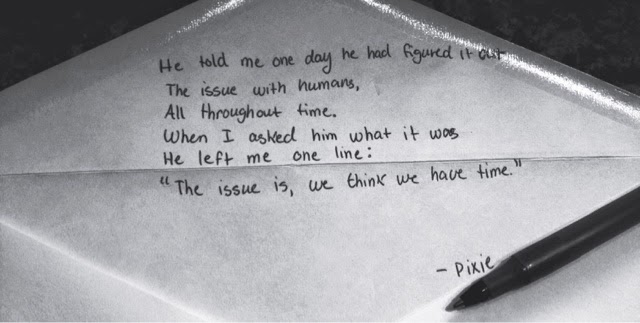 He told me one day he had figured it out
The issue with humans,
All throughout time.
When I asked him what it was
He left me one line:
"The issue is, we think we have time."
- Pixie